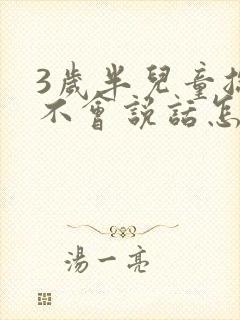 3歲半兒童
不會說話怎
湯一亮